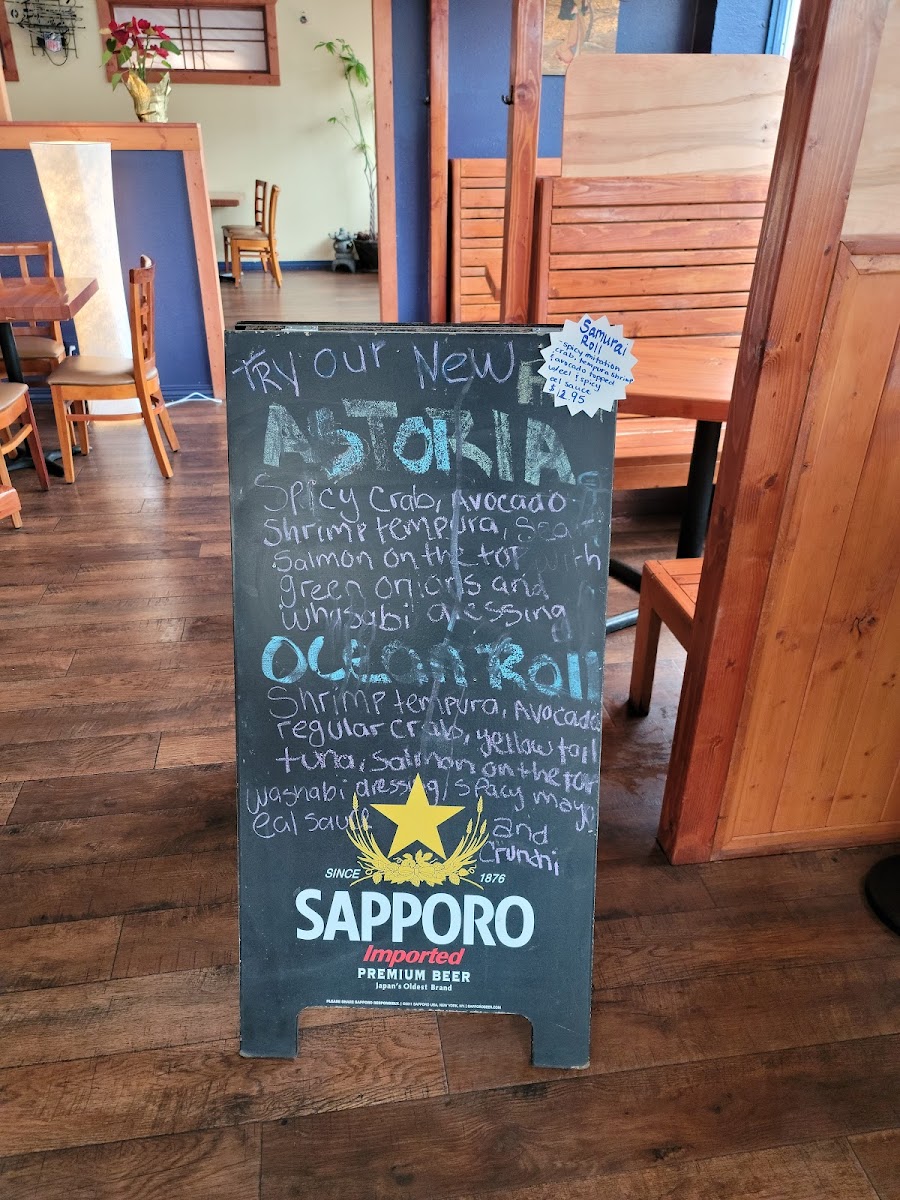 Try our New
Samurai
Roll
-spicy imitation
crab, tempura shrimp
& avocado topped
w/eel & spicy
eel sauce
$12.95
ASTORIA
Spicy Crab, Avocado
Shrimp tempura, Sea
Salmon on the top with
green onions and
whasabi dressing
OCEAN Roll
Shrimp tempura, Avocado
regular crab, yellow tail
tuna, Salmon on the top
washabi dressing/spacy mayo
eal sauce and
Crunchi
SINCE 1876
SAPPORO
Imported
PREMIUM BEER
Japan's Oldest Brand